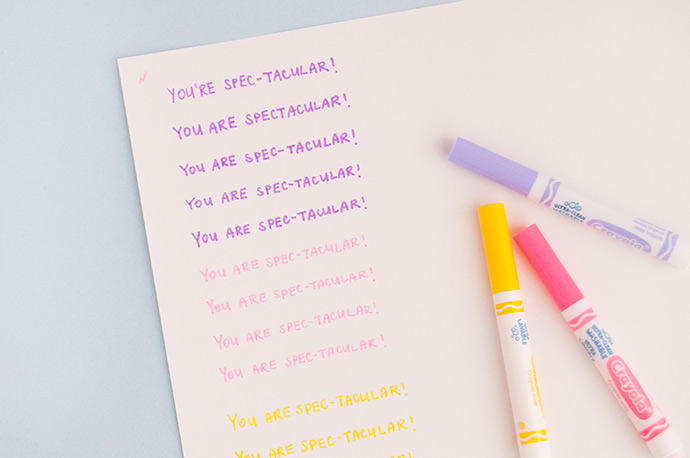 YOU'RE SPEC-TACULAR!
YOU ARE SPECTACULAR!
YOU ARE SPEC-TACULAR!
YOU ARE SPEC-TACULAR!
YOU ARE SPEC-TACULAR!
YOU ARE SPEC-TACULAR!
YOU ARE SPEC-TACULAR!
YOU ARE SPEC-TACULAR!
YOU ARE SPEC-TACULAR!
YOU ARE SPEC-TACULAR!
YOU ARE SPEC-TACULAR!
ULTRA-CLEAN
WASHABLE
Crayola
ULTRA-CLEAN
WASHABLE
Crayola